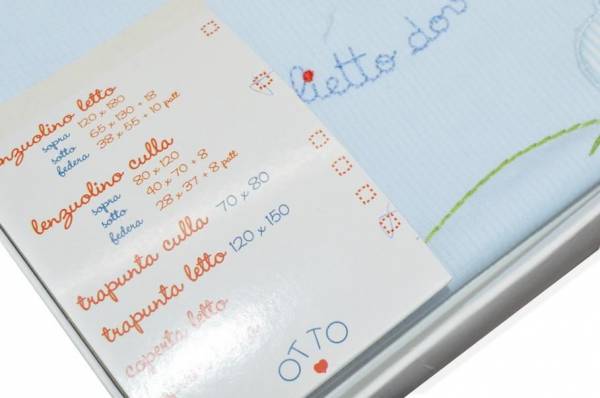 lenzuolino letto
sopra 120 x 180
sotto 65 x 130 + 18
federa 38 x 55 + 10 patt
lenzuolino culla
sopra 80 x 120
sotto 40 x 70 + 8
federa 28 x 37 + 8 patt
trapunta culla 70 x 80
trapunta letto 120 x 150
coperta letto
OTTO